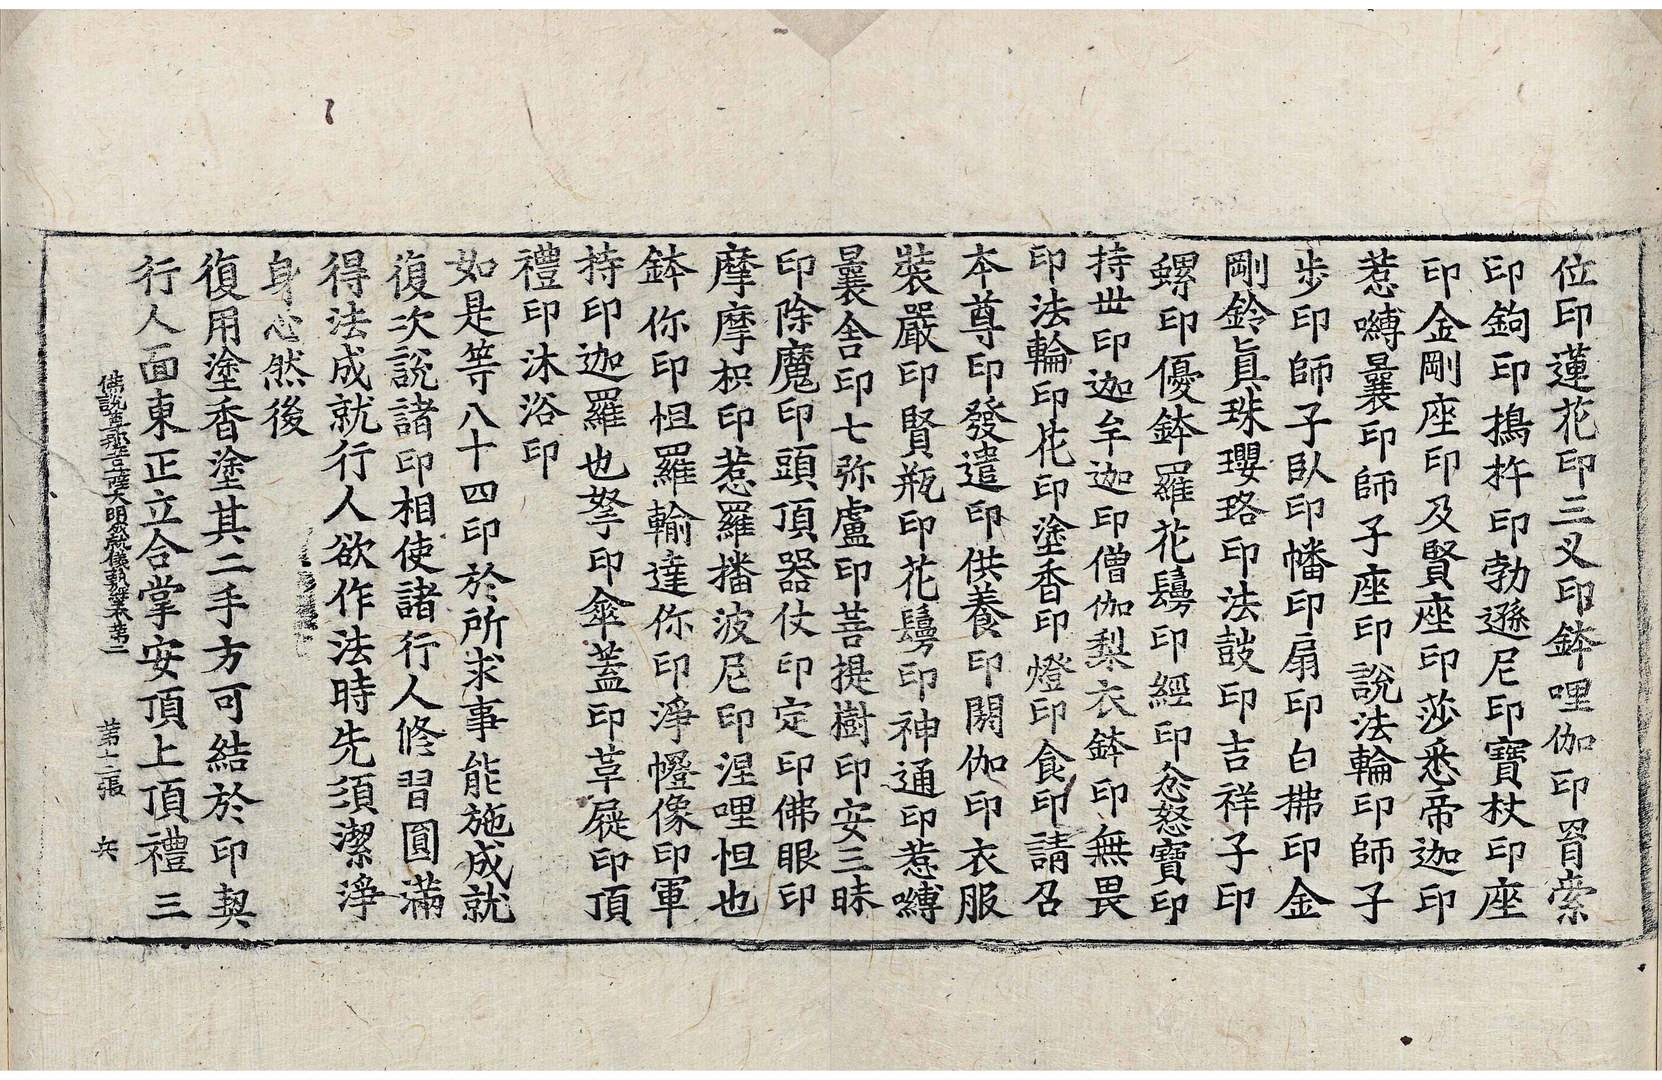 位印蓮花印三叉印鉢哩伽印罥索
印鉤印擣杵印勃遜尼印寶杖印座
印金剛座印及賢座印莎悉帝迦印
惹嚩曩印師子座印說法輪印師子
步印師子臥印幡印扇印白拂印金
剛鈴眞珠瓔珞印法鼓印吉祥子印
螺印優鉢羅花鬘印經印忿怒寶印
持世印迦牟迦印僧伽梨衣鉢印無畏
印法輪印花印塗香印燈印食印請召
本尊印發遣印供養印閼伽印衣服
裝嚴印賢瓶印花鬘印神通印惹嚩
曩舍印七弥盧印菩提樹印安三昧
印除魔印頭頂器仗印定印佛眼印
摩摩枳印惹羅播波尼印涅哩怛也
鉢你印怛羅輸達你印淨幢像印軍
持印迦羅也拏印傘蓋印草屣印頂
禮印沐浴印
如是等八十四印於所求事能施成就
復次說諸印相使諸行人修習圓滿
得法成就行人欲作法時先須潔淨
身心然後
復用塗香塗其二手方可結於印契
行人面東正立合掌安頂上頂禮三
佛說 大明 儀軌 第二 第十二張